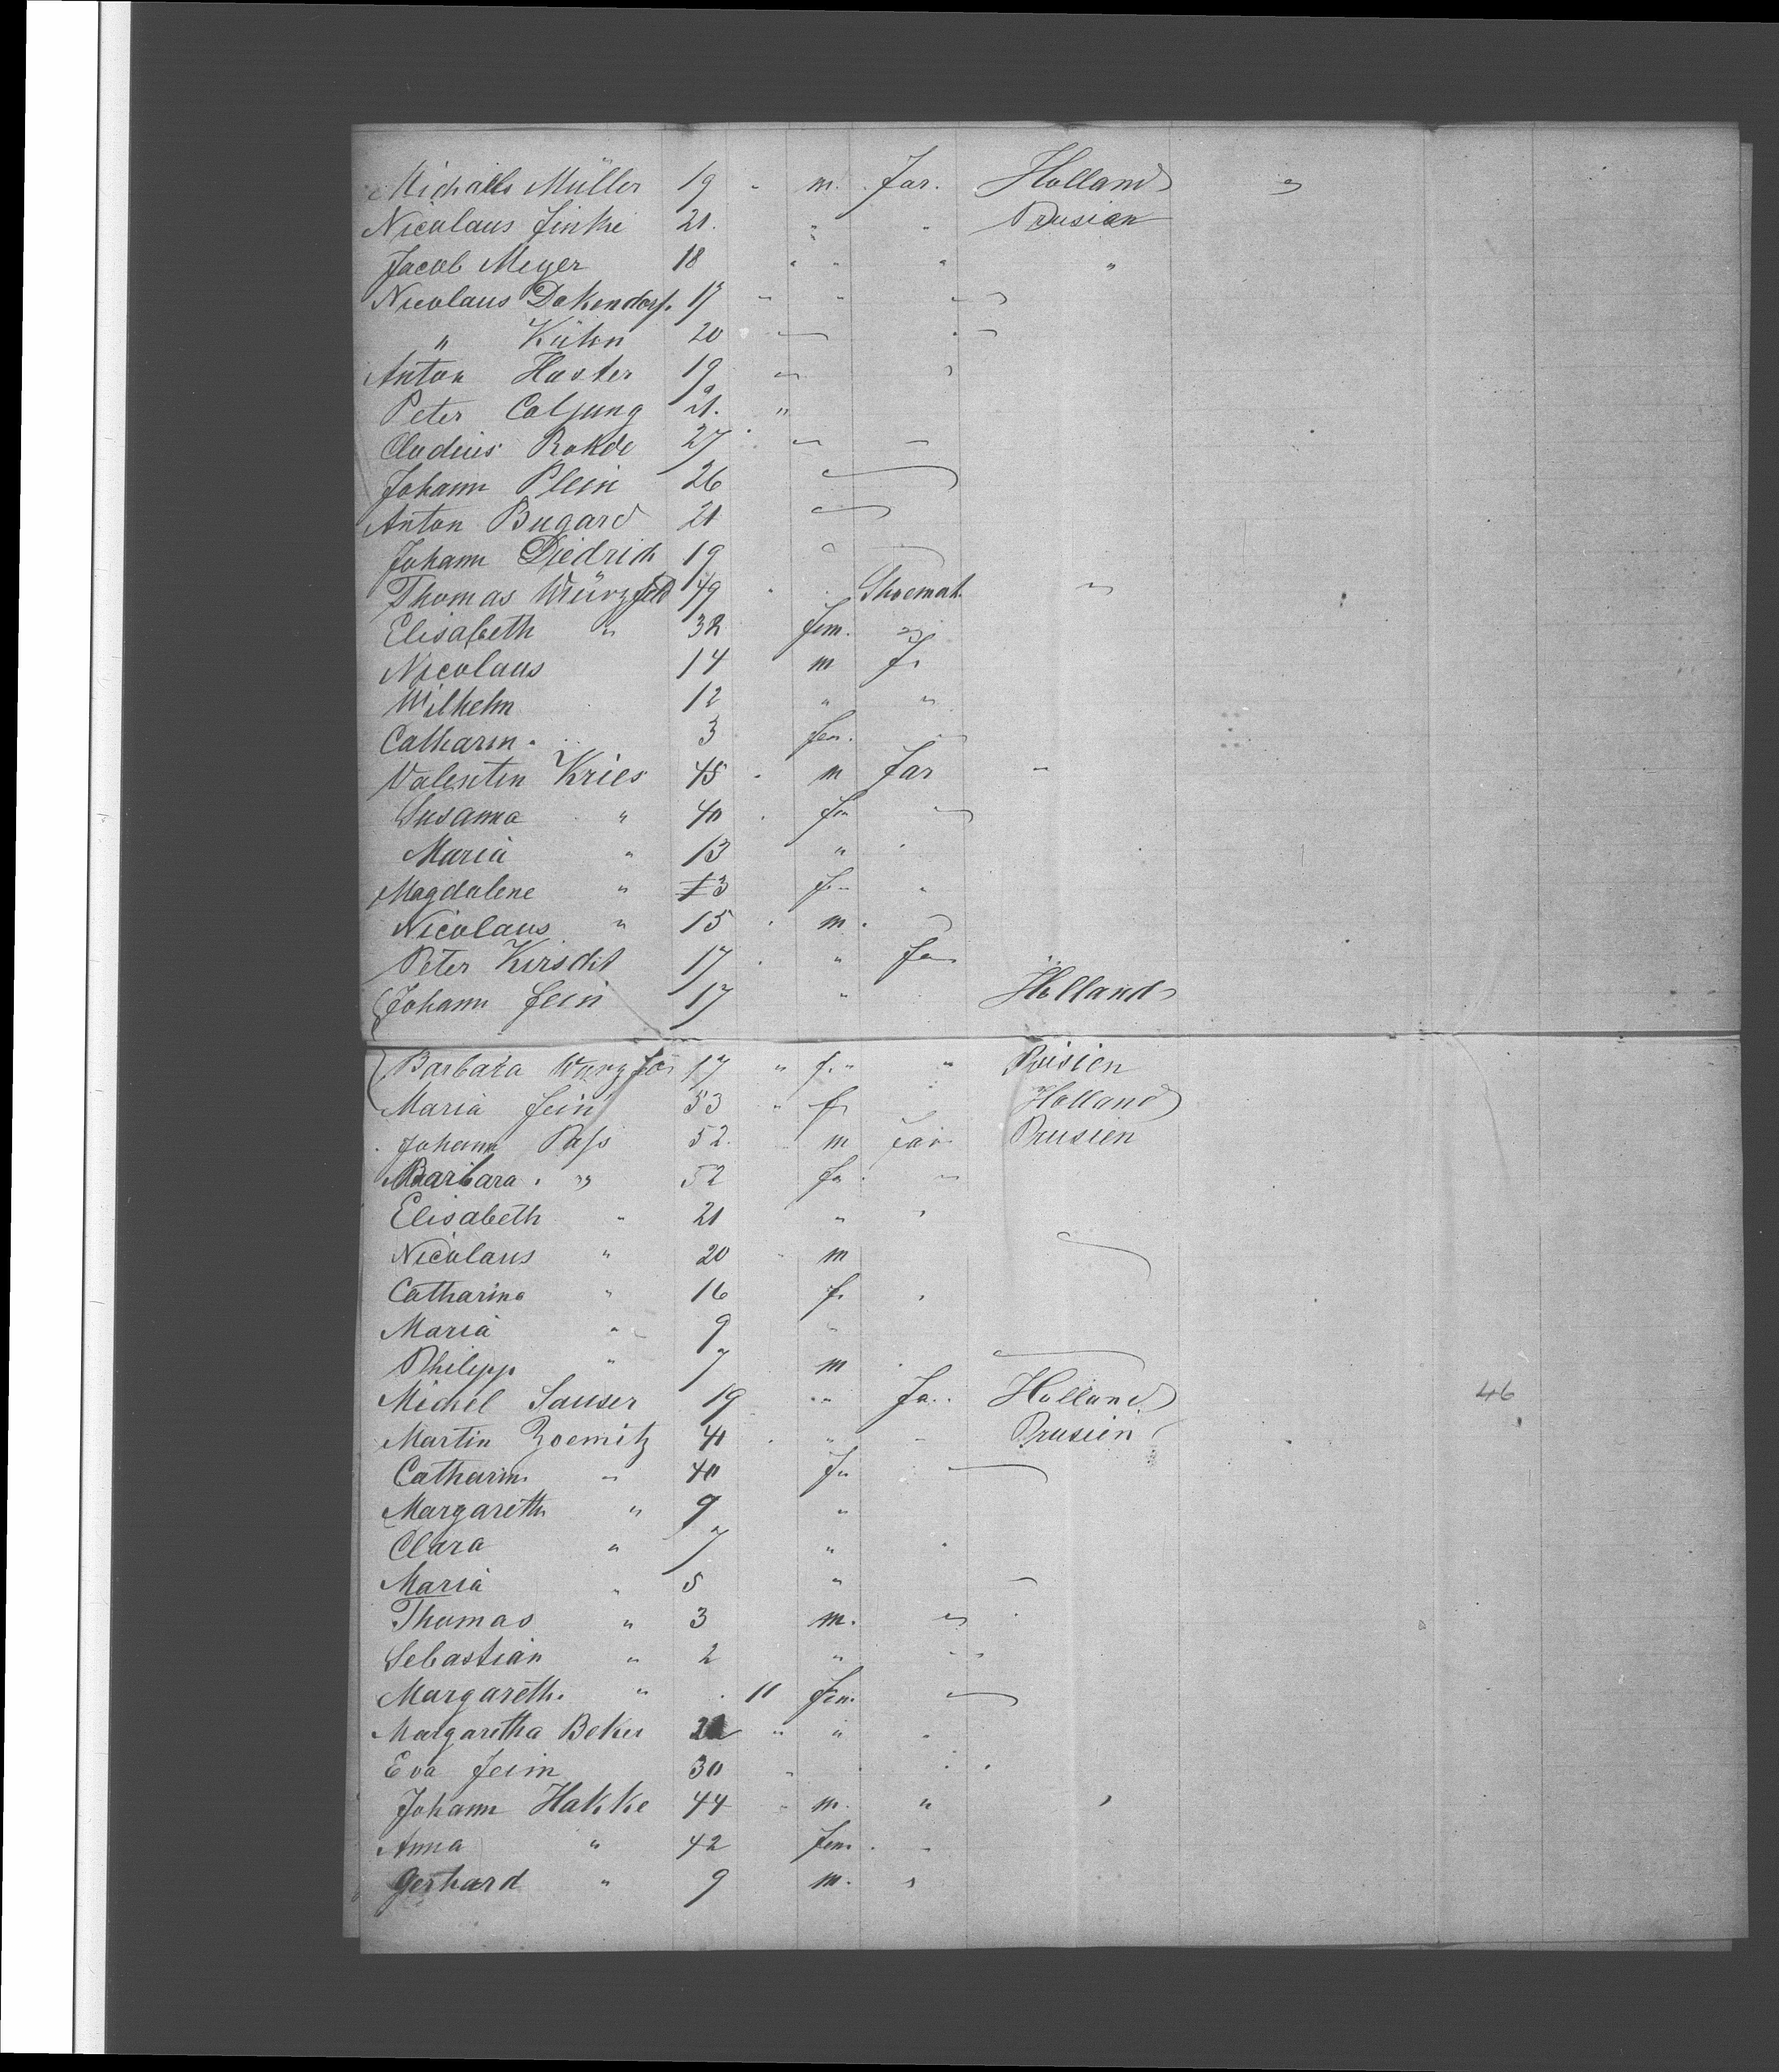 Michaels Müller 19 " m. Far. Holland "
Nicolaus Finke 21. " " Prusien
Jacob Meyer 18 " " " "
Nicolaus Dakendorf. 19 " " "
" Kühn 20 " "
Anton Haster 19 " "
Peter Caljung 21. "
Cludius Rokde 27 " "
Johann Plein 26 "
Anton Bugard 21 "
Johann Diedrich 19 "
Thomas Würzfeld 49 " Shoemak. "
Elisabeth " 32 fem. "
Nicolaus 14 m F.
Wilhelm 12 " "
Catharin. 3 fem. "
Valentin Kries 45 " m Far "
Susanna " 40 " fem "
Maria " 13 " "
Magdalene " 13 fem "
Nicolaus " 15 " m. "
Peter Kirscht 17 " " Fa
Johann Fein 17 " Holland
Barbara Wurzfe 17 " f. " " Prusien
Maria Fein 53 " f Holland
Johann Pass 52. m Far. Prusien
Barbara " 52 fe "
Elisabeth " 21 " "
Nicolaus " 20 " m
Catharina " 16 f. "
Maria " 9 "
Philipp " 7 m "
Michel Sauser 19 " Fa.. Holland 46
Martin Zoemitz 41 " " " Prusien
Catharin. " 40 fe "
Margareth " 9 "
Clara " 7 " "
Maria " 5 " "
Thomas " 3 m. "
Sebastian " 2 " "
Margareth. " 11 fem. "
Margaretha Beker " " "
Eva Fein 30 " "
Johann Hakke 44 " m. " "
Anna " 42 fem. "
Gerhard " 9 m. "